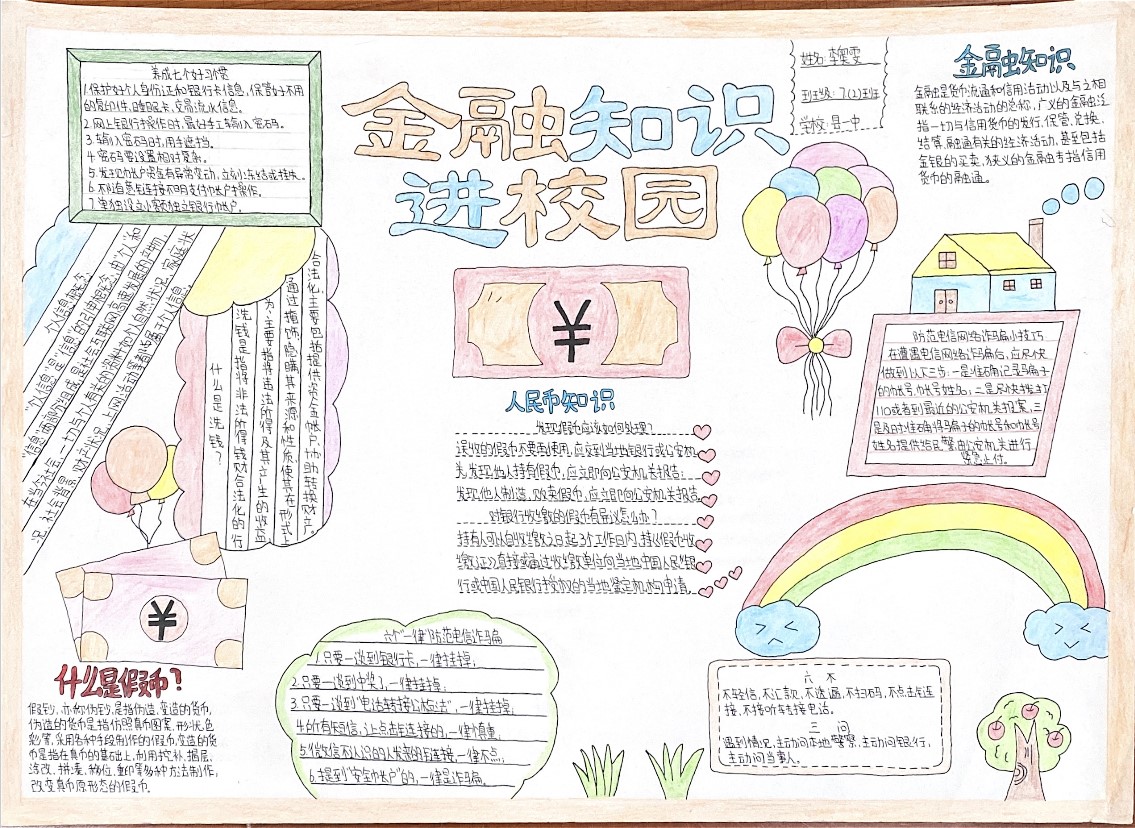 养成七个好习惯
1.保护好个人身份证和银行卡信息,保管好不用
的复印件、睡眠卡、交易流水信息。
2.网上银行操作时,最好手工输入密码。
3.输入密码时,用手遮挡。
4.密码要设置相对复杂。
5.发现帐户资金有异常变动,立刻冻结或挂失。
6.不随意连接不明支付帐户操作。
7.单独设立小额独立银行帐户。
金融知识
进校园
姓名:李雯雯
班级:7(2)班
学校:县一中
金融知识
金融是货币流通和信用活动以及与之相
联系的经济活动的总称,广义的金融泛
指一切与信用货币的发行、保管、兑换、
结算,融通有关的经济活动,甚至包括
金银的买卖,狭义的金融专指信用
货币的融通。
个人信息概念:
"个人信息"是"信息"的引申概念,由"个人"和
"信息"两部分组成,是社会互联网高速发展的产物,
在当今社会,一切与个人有关的资料,如个人自然状况、家庭状
况、社会背景、财产状况、上网活动踪迹都属于个人信息。
什么是洗钱?
洗钱是指将非法所得钱财合法化的行
为,主要指将违法所得及其产生的收益,
通过掩饰、隐瞒其来源和性质,使其在形式上
合法化,主要包括提供资金帐户、协助转换财产。
¥
人民币知识
发现假币应该如何处理?
误收的假币不要再使用,应交到当地银行或公安机
关,发现他人持有假币,应立即向公安机关报告;
发现他人制造、贩卖假币,应立即向公安机关报告
对银行收缴的假币有异议怎么办?
持有人可以自收缴之日起3个工作日内,持《假币收
缴证》直接或通过收缴单位向当地中国人民银
行或中国人民银行授权的当地鉴定机构申请。
防范电信网络诈骗小技巧
在遭遇电信网络诈骗后,应尽快
做到以下三步:一是准确记录骗子
的帐号、帐号姓名;二是尽快拨打
110或者到最近的公安机关报案,三
是及时准确将骗子的帐号和帐号
姓名提供给民警,由公安机关进行
紧急止付。
¥
什么是假币?
假钞,亦称伪钞,是指伪造、变造的货币,
伪造的货币是指仿照真币图案、形状、色
彩等,采用各种手段制作的假币,变造的货
币是指在真币的基础上,利用挖补、揭层、
涂改、拼凑、移位、重印等多种方法制作,
改变真币原形态的假币。
六个"一律"防范电信诈骗
1.只要一谈到银行卡,一律挂掉;
2.只要一谈到中奖了,一律挂掉;
3.只要一谈到"电话转接公检法",一律挂掉;
4.所有短信,让点击连接的,一律慎重;
5.微信不认识的人发来的连接,一律不点;
6.提到"安全帐户"的,一律是诈骗。
六 不
不轻信,不汇款,不透漏,不扫码,不点击连
接,不接听转接电话。
三 问
遇到情况,主动问本地警察,主动问银行,
主动问当事人。